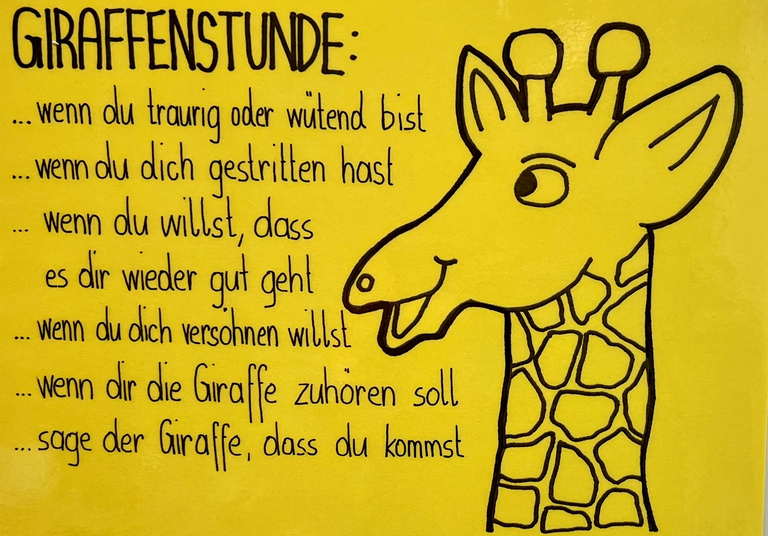 GIRAFFENSTUNDE:
...wenn du traurig oder wütend bist
...wenn du dich gestritten hast
... wenn du willst, dass
es dir wieder gut geht
... wenn du dich versöhnen willst
...wenn dir die Giraffe zuhören soll
...sage der Giraffe, dass du kommst